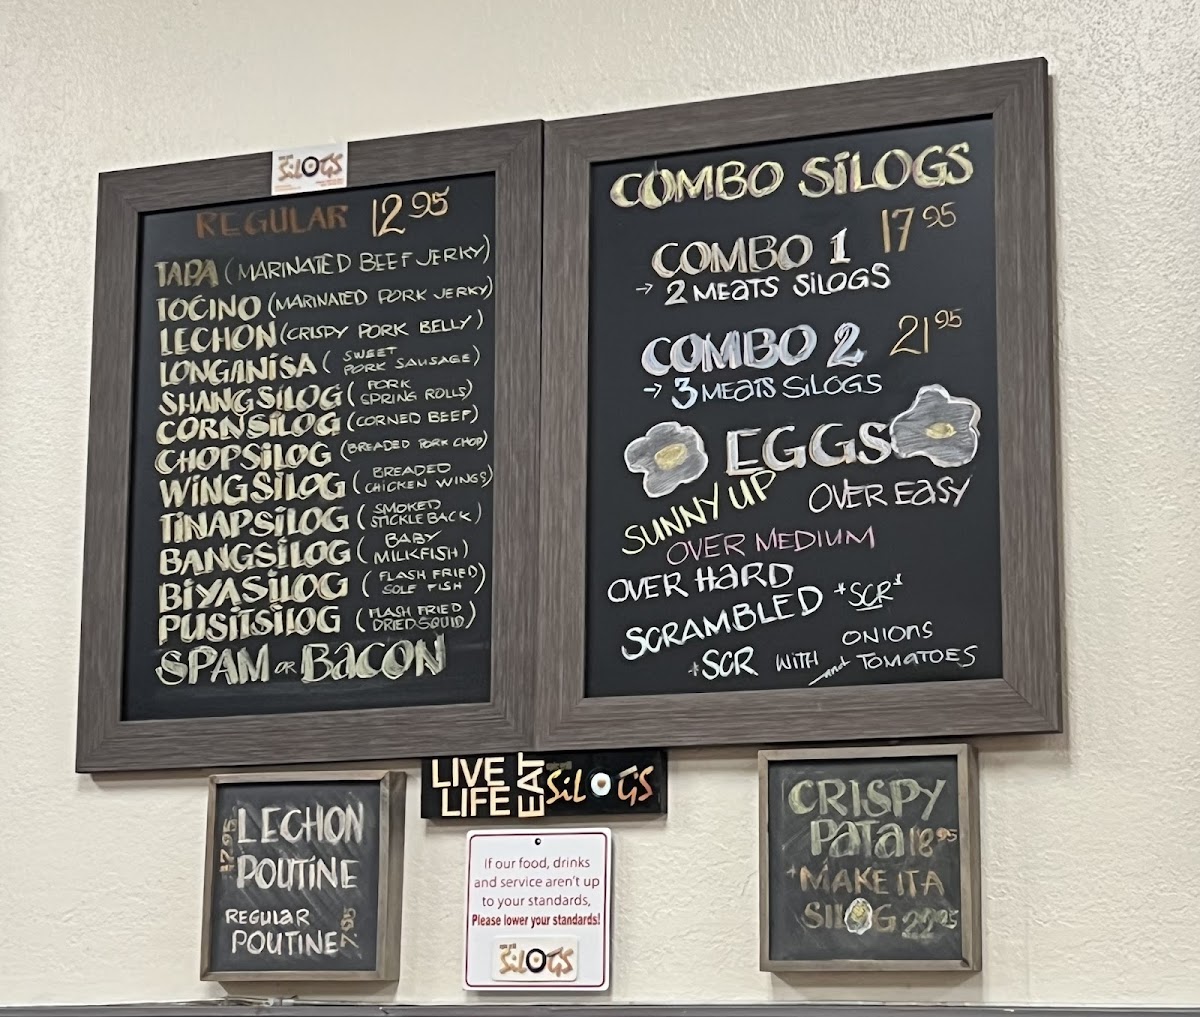 SiLOGS
REGULAR 12.95
TAPA (MARINATED BEEF JERKY)
TOCINO (MARINATED PORK JERKY)
LECHON (CRISPY PORK BELLY)
LONGANISA (SWEET PORK SAUSAGE)
SHANGSILOG (PORK SPRING ROLLS)
CORNSILOG (CORNED BEEF)
CHOPSILOG (BREADED PORK CHOP)
WINGSILOG (BREADED CHICKEN WINGS)
TINAPSILOG (SMOKED STICKLEBACK)
BANGSILOG (BABY MILKFISH)
BIYASILOG (FLASH FRIED SOLE FISH)
PUSITSILOG (FLASH FRIED DRIED SQUID)
SPAM OR BACON
COMBO SiLOGS
COMBO 1 17.95
→ 2 MEATS SiLOGS
COMBO 2 21.95
→ 3 MEATS SiLOGS
EGGS
SUNNY UP
OVER EASY
OVER MEDIUM
OVER HARD
SCRAMBLED *SCR*
*SCR WITH ONIONS and TOMATOES
LECHON
POUTINE
17.95
REGULAR
POUTINE 7.95
LIVE
LIFE
EAT
SiLOGS
If our food, drinks
and service aren't up
to your standards,
Please lower your standards!
SiLOGS
CRISPY
PATA 18.95
*MAKE IT A
SILOG